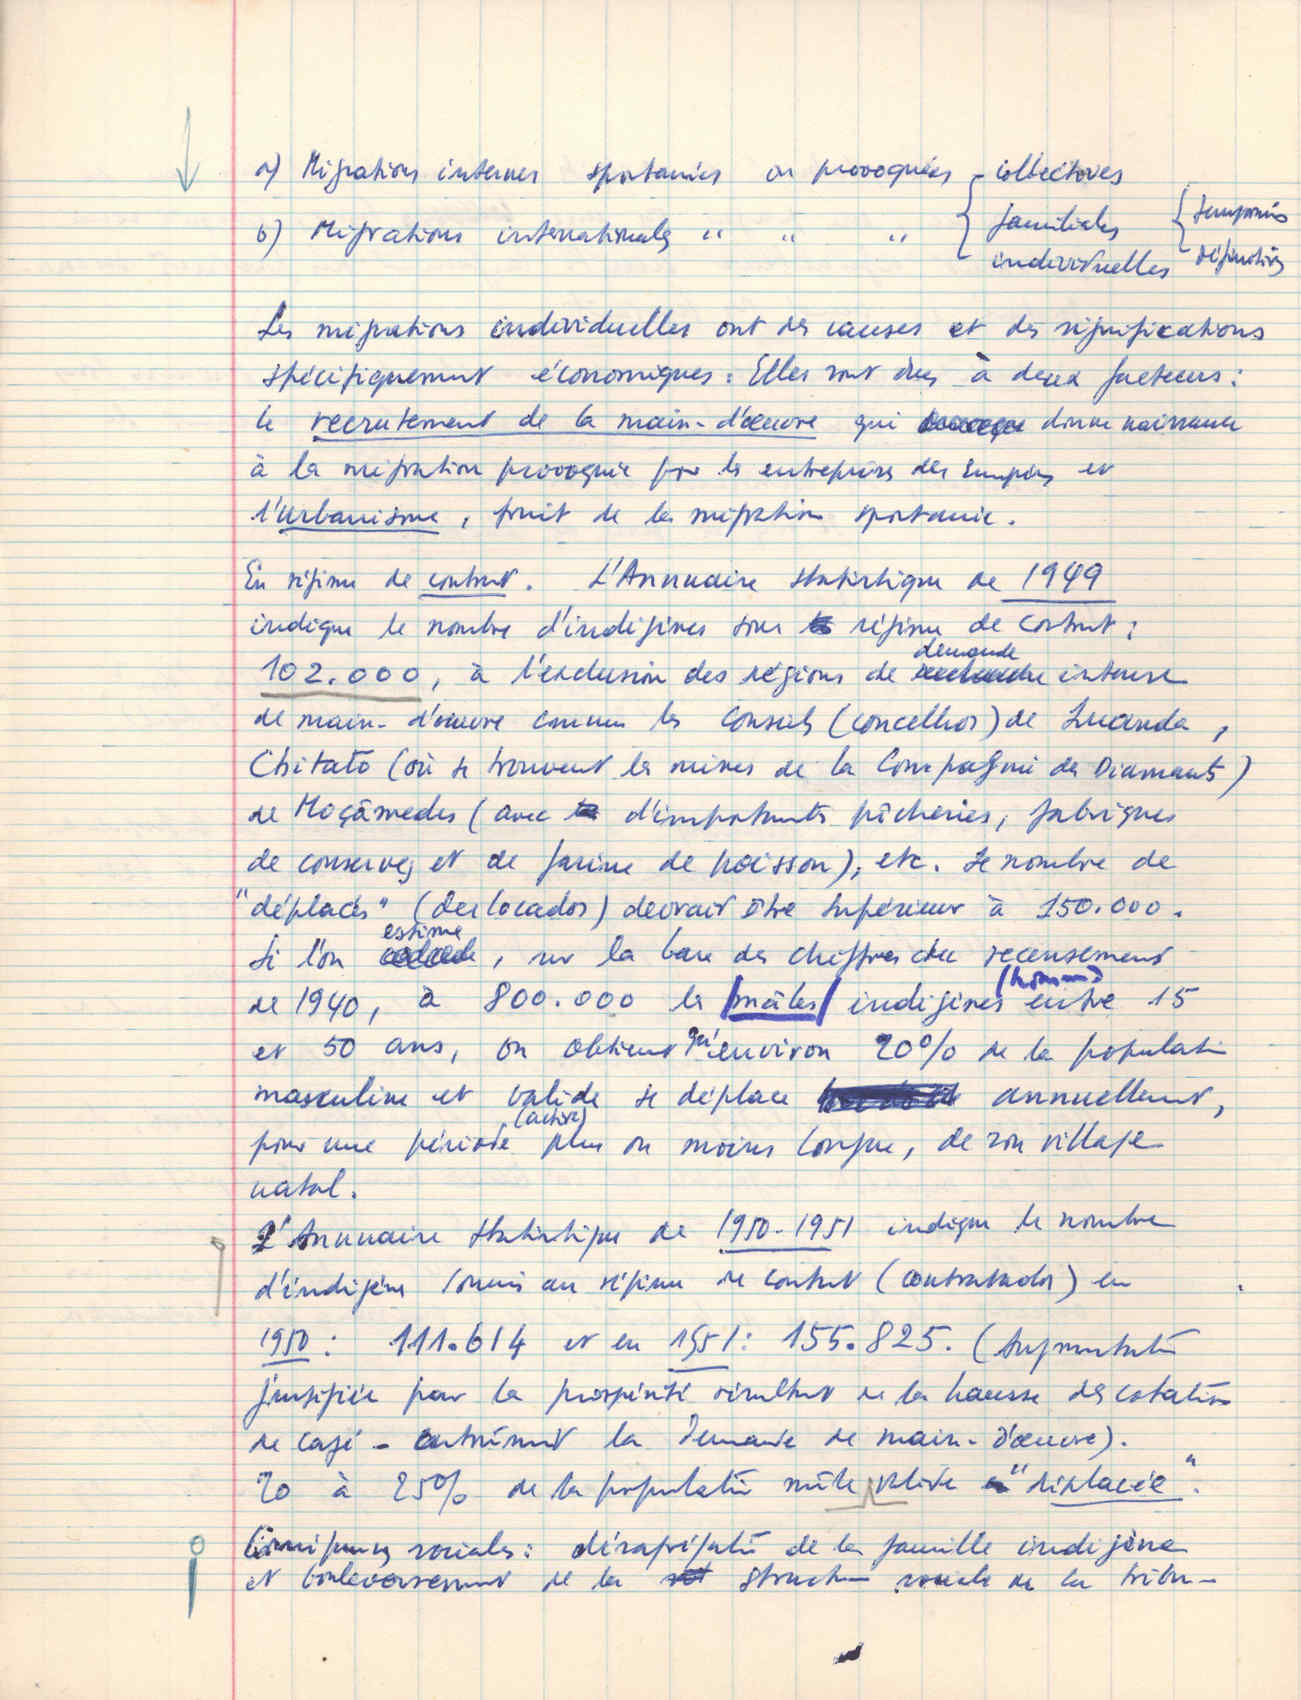 a) Migrations internes spontanées ou provoquées { collectives
b) Migrations internationales " " " { familiales { temporaires
individuelles définitives
Les migrations individuelles ont des causes et des significations
spécifiquement économiques : Elles sont dues à deux facteurs :
le recrutement de la main-d'œuvre qui donne naissance
à la migration provoquée par les entreprises des Européens et
l'urbanisme, fruit de la migration spontanée.
En régime de contrat. L'Annuaire statistique de 1949
indique le nombre d'indigènes sous régime de contrat :
demande
102.000, à l'exclusion des régions de intense
de main-d'œuvre comme les Conseils (concelhos) de Luanda,
Chitato (où se trouvent les mines de la Compagnie des Diamants)
de Moçâmedes (avec d'importants pêcheries, fabriques
de conserves et de farine de poisson), etc. Le nombre de
"déplacés" (deslocados) devrait être supérieur à 150.000.
estime
Si l'on , sur la base des chiffres du recensement
(hommes)
de 1940, à 800.000 les mâles indigènes entre 15
et 50 ans, on obtient qu'environ 20% de la populati
masculine et valide se déplace annuellement,
(active)
pour une période plus ou moins longue, de son village
natal.
L'Annuaire Statistique de 1950-1951 indique le nombre
d'indigènes soumis au régime de contrat (contratados) en
1950 : 111.614 et en 1951 : 155.825. (Augmentation
justifiée par la prospérité résultant de la hausse des cotations
de café - entraînant la demande de main-d'œuvre).
20 à 25% de la population mâle valide "déplacée".
sociales : désagrégation de la famille indigène
et bouleversement de la structure sociale de la tribu -